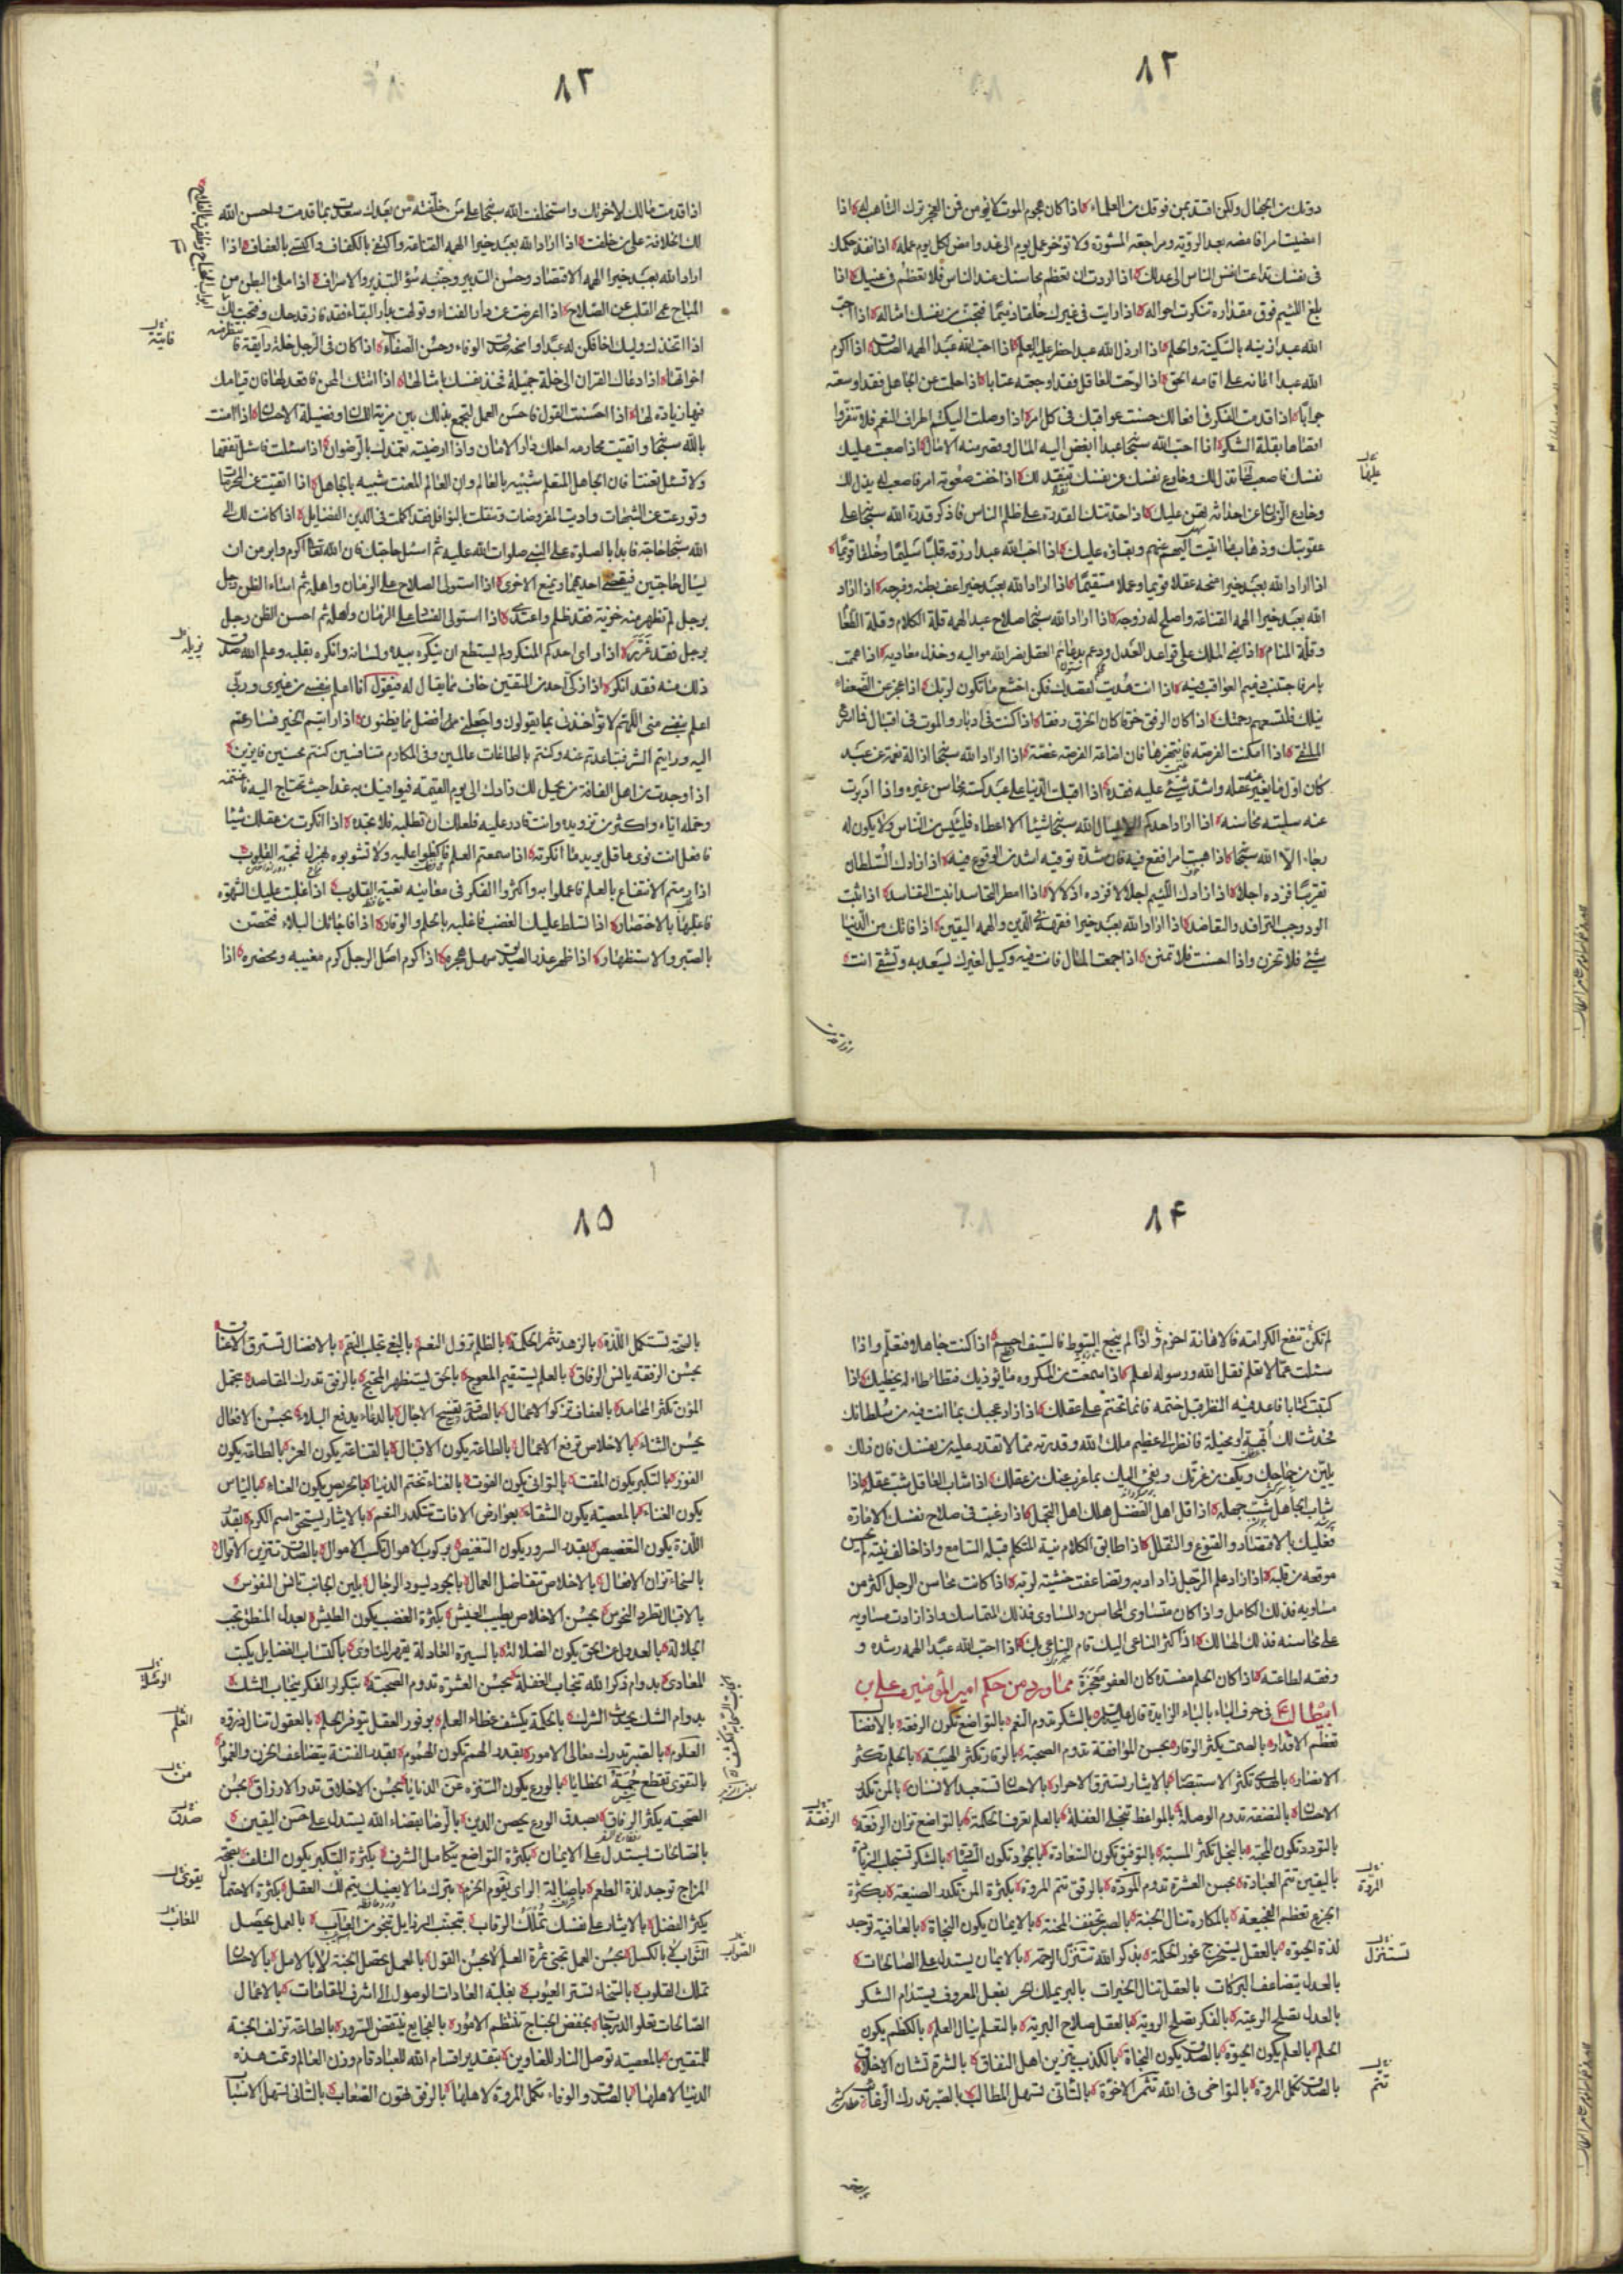 ٨٢
دونك من الجهال ولكن اقتد بمن فوقك من العلماء اذا كان هجوم الموت لا يؤمن فمن العجز ترك التاهب له اذا
امضيت امرا فامضه بعد الروية ومراجعة المشورة ولا تؤخر عمل يوم الى غد وامض لكل يوم عمله اذا نفذ حكمك
فى نفسك تداعت انفس الناس الى عدلك اذا اردت ان تعظم محاسنك عند الناس فلا تعظم فى عينك اذا
بلغ اللئيم فوق مقداره تنكرت احواله اذا رايت فى غيرك خلقا ذميما فتجنب من نفسك امثاله اذا احب
الله عبدا زينه بالسكينة والحلم اذا ارذل الله عبدا حظر عليه العلم اذا احب الله عبدا الهمه الصدق اذا اكرم
الله عبدا اعانه على اقامة الحق اذا لوحت للعاقل فقد اوجعته عتابا اذا حلمت عن الجاهل فقد اوسعته
جوابا اذا قدمت الفكر فى افعالك حسنت عواقبك فى كل امر اذا وصلت اليكم اطراف النعم فلا تنفروا
اقصاها بقلة الشكر اذا احب الله سبحانه عبدا ابغض اليه المال وقصر منه الامال اذا صعبت عليك
نفسك فاصعب لها تذل لك وخادع نفسك عن نفسك تنقد لك اذا خفت صعوبة امر فاصعب له يذل لك
وخادع الزمان عن احداثه تهن عليك اذا حدتك القدرة على ظلم الناس فاذكر قدرة الله سبحانه على
عقوبتك وذهاب ما اتيت اليهم عنهم وبقاؤه عليك اذا احب الله عبدا رزقه قلبا سليما وخلقا قويما
اذا اراد الله بعبد خيرا منحه عقلا قويما وعملا مستقيما اذا اراد الله بعبد خيرا اعف بطنه وفرجه اذا اراد
الله بعبد خيرا الهمه القناعة واصلح له زوجه اذا اراد الله سبحانه صلاح عبد الهمه قلة الكلام وقلة الطعام
وقلة المنام اذا بنى الملك على قواعد العدل ودعم بدعائم العقل نصر الله مواليه وخذل معاديه اذا هممت
بامر فاجتنب ذميم العواقب فيه اذا انت هديت لقصدك فكن اخشع ما تكون لربك اذا عجز عن الضعفاء
نيلك فلتسعهم رحمتك اذا كان الرفق خرقا كان الخرق رفقا اذا كنت فى ادبار والموت فى اقبال فما اسرع
الملتقى اذا امكنت الفرصة فانتهزها فان اضاعة الفرصة غصة اذا اراد الله سبحانه ازالة نعمة عن عبد
كان اول ما يغير عنه عقله واشد شيئ عليه فقده اذا اقبلت الدنيا على عبد كسته محاسن غيره واذا ادبرت
عنه سلبته محاسنه اذا اراد احدكم الا يسال الله سبحانه شيئا الا اعطاه فلييئس من الناس ولا يكون له
رجاء الا الله سبحانه اذا هبت امرا فقع فيه فان شدة توقيه اشد من الوقوع فيه اذا زادك السلطان
تقريبا فزده اجلالا اذا زادك اللئيم اجلالا فزده اذلالا اذا امطر التحاسد انبت التفاسد اذا ثبت
الود وجب الترافد والتعاضد اذا اراد الله بعبد خيرا فقهه فى الدين والهمه اليقين اذا فاتك من الدنيا
شيئ فلا تحزن واذا احسنت فلا تمنن اذا جمعت المال فانت فيه وكيل لغيرك يسعد به وتشقى انت
عليها
اذا قدمت
٨٢
اذا قدمت مالك لاخرتك واستخلفت الله سبحانه على من خلفته من بعدك سعدت بما قدمت واحسن الله
لك الخلافة على من خلفت اذا اراد الله بعبد خيرا الهمه القناعة واكتفى بالكفاف واكتسى بالعفاف اذا
اراد الله بعبد خيرا الهمه الاقتصاد وحسن التدبير وجنبه سؤ التبذير والاسراف اذا ملئ البطن من
المباح عمى القلب عن الصلاح اذا اعرضت عن دار الفناء وتولهت بدار البقاء فقد فاز قدحك وفتحت لك
اذا اتخذك وليك اخا فكن له عبدا وامنحه صدق الوفاء وحسن الصفاء اذا كان فى الرجل خلة رائقة فانتظر منه
اخواتها اذا دعاك القران الى خلة جميلة فخذ نفسك بامثالها اذا اتتك المحن فاقعد لها فان قيامك
فيها زيادة لها اذا احسنت القول فاحسن العمل لتجمع بذلك بين مزية اللسان وفضيلة الاحسان اذا امنت
بالله سبحانه واتقيت محارمه احلك دار الامان واذا ارضيته تغمدك بالرضوان اذا سئلت فاسئل تفقها
ولا تسئل تعنتا فان الجاهل المتعلم شبيه بالعالم وان العالم المتعنت شبيه بالجاهل اذا اتقيت المحرمات
وتورعت عن الشبهات واديت المفروضات وتنفلت بالنوافل فقد اكملت فى الدين الفضايل اذا كانت لك الى
الله سبحانه حاجة فابدا بالصلوة على النبى صلوات الله عليه ثم اسئل حاجتك فان الله تعالى اكرم وابر من ان
يسال حاجتين فيقضى احديهما ويمنع الاخرى اذا استولى الصلاح على الزمان واهله ثم اساء الظن رجل
برجل لم تظهر منه خزية فقد ظلم واعتدى اذا استولى الفساد على الزمان واهله ثم احسن الظن رجل
برجل فقد غرر اذا راى احدكم المنكر ولم يستطع ان ينكره بيده ولسانه وانكره بقلبه وعلم الله صدق
ذلك منه فقد انكره اذا زكى احد من المتقين خاف مما يقال له فيقول انا اعلم بنفسى من غيرى وربى
اعلم بنفسى منى اللهم لا تؤاخذنى بما يقولون واجعلنى افضل مما يظنون اذا رايتم الخير فسارعتم
اليه ورايتم الشر فتباعدتم عنه وكنتم بالطاعات عاملين وفى المكارم متنافسين كنتم محسنين فايزين
اذا وجدت من اهل الفاقة من يحمل لك زادك الى يوم القيمة فيوافيك به غدا حيث تحتاج اليه فاغتنمه
وحمله اياه واكثر من تزويده وانت قادر عليه فلعلك ان تطلبه فلا تجده اذا انكرت من عقلك شيئا
فاقتد انت براى عاقل يزيل ما انكرته اذا سمعتم العلم فاكظموا عليه ولا تشوبوه بهزل فتمجه القلوب
اذا رمتم الانتفاع بالعلم فاعملوا به واكثروا الفكر فى معانيه تعيه القلوب اذا غلبت عليك الشهوة
فاغلبها بالاختصار اذا تسلط عليك الغضب فاغلبه بالحلم والوقار اذا فاجاك البلاء فتحصن
بالصبر والاستظهار اذا ظهر غدر الصديق سهل هجره اذا كرم اصل الرجل كرم مغيبه ومحضره اذا
فانية
يزيله
٨۴
لم تكن تنفع الكرامة فالاهانة احزم واذا لم ينجح السوط فالسيف احسم اذا كنت جاهلا فتعلم واذا
سئلت عما لا تعلم فقل الله ورسوله اعلم اذا سمعت من المكروه ما يؤذيك فتطاطاء له يخطيك اذا
كتبت كتابا فاعد فيه النظر قبل ختمه فانما تختم على عقلك اذا زاد عجبك بما انت فيه من سلطانك
فحدثت لك ابهة او مخيلة فانظر الى عظيم ملك الله وقدرته مما لا تقدر عليه من نفسك فان ذلك
يلين من جماحك ويكف من غربك ويفئ اليك بما عزب عنك من عقلك اذا شاب العاقل شب عقله اذا
شاب الجاهل شب جهله اذا قل اهل الفضل هلك اهل التجمل اذا رغبت فى صلاح نفسك الامارة
فعليك بالاقتصاد والقنوع والتقلل اذا طابق الكلام نية المتكلم قبله السامع واذا خالف نيته لم يحسن
موقعه من قلبه اذا زاد علم الرجل زاد ادبه وتضاعفت خشيته لربه اذا كانت محاسن الرجل اكثر من
مساويه فذلك الكامل واذا كان متساوى المحاسن والمساوى فذلك المتماسك واذا زادت مساويه
على محاسنه فذلك الهالك اذا كثر الناعى اليك قام الناعى بك اذا احب الله عبدا الهمه رشده و
وفقه لطاعته اذا كان الحلم مفسدة كان العفو معجزة مما ورد من حكم امير المؤمنين على بن
ابيطالب فى حرف الباء بالباء الزايدة قال عليه السلام بالشكر تدوم النعم بالتواضع تكون الرفعة بالافضال
تعظم الاقدار بالصمت يكثر الوقار بحسن الموافقة تدوم الصحبة بالوقار تكثر الهيبة بالحلم تكثر
الانصار بالهدى تكثر الاستبصار بالايثار يسترق الاحرار بالاحسان تستعبد الانسان بالمن تكدر
الاحسان بالنصفة تدوم الوصلة بالمواعظ تنجلى الغفلة بالعلم تعرف الحكمة بالتواضع تزان الرفعة
بالتودد تكون المحبة بالبخل تكثر المسبة بالتوفيق تكون السعادة بالجود تكون السيادة بالشكر تستجلب الزيادة
باليقين تتم العبادة بحسن العشرة تدوم المودة بالرفق تتم المروة بكثرة المن تكدر الصنيعة بكثرة
الجزع تعظم الفجيعة بالمكاره تنال الجنة بالصبر تخفف المحنة بالايمان يكون النجاة بالعافية توجد
لذة الحيوة بالعقل يستخرج غور الحكمة بذكر الله تستنزل الرحمة بالايمان يستدل على الصالحات
بالعدل يتضاعف البركات بالعقل تنال الخيرات بالبر يملك الحر بفعل المعروف يستدام الشكر
بالعدل تصلح الرعية بالفكر تصلح الروية بالعقل صلاح البرية بالتعلم ينال العلم بالكظم يكون
الحلم بالعلم يكون الحيوة بالصدق يكون النجاة بالكذب يتزين اهل النفاق بالشره تشان الاخلاق
بالصدق تكمل المروة بالتواخى فى الله تثمر الاخوة بالتانى تسهل المطالب بالصبر تدرك الرغائب
المروة
تستنزل
تتم
الرفعة
بالصحة
٨۵
بالصحة تستكمل اللذة بالزهد تثمر الحكمة بالظلم تزول النعم بالبغى تجلب النقم بالافضال تسترق الاعناق
بحسن الرفقة يانس الرفاق بالعلم يستقيم المعوج بالحق يستظهر المحتج بالرفق تدرك المقاصد بتحمل
المؤن تكثر المحامد بالعفاف تزكوا الاعمال بالصدقة تفسح الاجال بالدعاء يدفع البلاء بحسن الافعال
يحسن الثناء بالاخلاص ترفع الاعمال بالطاعة يكون الاقبال بالقناعة يكون العز بالطاعة يكون
الفوز بالتكبر يكون المقت بالتوانى يكون الفوت بالفناء تختم الدنيا بالحرص يكون العناء بالياس
يكون الغناء بالمعصية يكون الشقاء بعوارض الافات تتكدر النعم بالايثار يستحق اسم الكرم بقدر
اللذة يكون التغصيص بقدر السرور يكون التنغيص بركوب الاهوال تكسب الاموال بالصدق تتزين الاقوال
بالسخاء تزان الافعال بالاخلاص تتفاضل العمال بالجود يسود الرجال بلين الجانب تانس النفوس
بالاقبال تطرد النحوس بحسن الاخلاص يطيب العيش بكثرة الغضب يكون الطيش بعدل المنطق تجب
الجلالة بالعدول عن الحق يكون الضلالة بالسيرة العادلة يقهر المناوى باكتساب الفضايل يكبت
المعادى بدوام ذكر الله تنجاب الغفلة بحسن العشرة تدوم الصحبة بتكرار الفكر ينجاب الشك
بدوام الشك يحدث الشرك بالحكمة يكشف غطاء العلم بوفور العقل يتوفر الحلم بالعقول تنال ذروة
العلوم بالصبر تدرك معالى الامور بقدر الهمم تكون الهموم بقدر الفتنة يتضاعف الحزن والغموم
بالتقوى تقطع حمة الخطايا بالورع يكون التنزه عن الدنايا بحسن الاخلاق تدر الارزاق بحسن
الصحبة يكثر الرفاق بصدق الورع يحصن الدين بالرضا بقضاء الله يستدل على حسن اليقين
بالصالحات يستدل على الايمان بكثرة التواضع يتكامل الشرف بكثرة التكبر يكون التلف بصحة
المزاج توجد لذة الطعم باصالة الراى يقوم الحزم بترك ما لا يعنيك يتم لك العقل بكثرة الاحتمال
يكثر الفضل بالايثار على نفسك تملك الرقاب بتجنب الرذايل تنجو من العاب بالعمل يحصل
الثواب لا بالكسل بحسن العمل تجنى ثمرة العلم لا بحسن القول بالعمل يحصل الجنة لا بالامل بالاحسان
تملك القلوب بالسخاء تستر العيوب بغلبة العادات الوصول الى اشرف المقامات بالاعمال
الصالحات تعلو الدرجات بخفض الجناح تنتظم الامور بالفجايع يتنغص السرور بالطاعة تزلف الجنة
للمتقين بالمعصية توصل النار للغاوين بتقدير اقسام الله للعباد قام وزن العالم وتمت هذه
الدنيا لاهلها بالصدق والوفاء تكمل المروة لاهلها بالرفق تهون الصعاب بالتانى تسهل الاسباب
العلم
من
صدق
يقوى
المعاب
الثواب